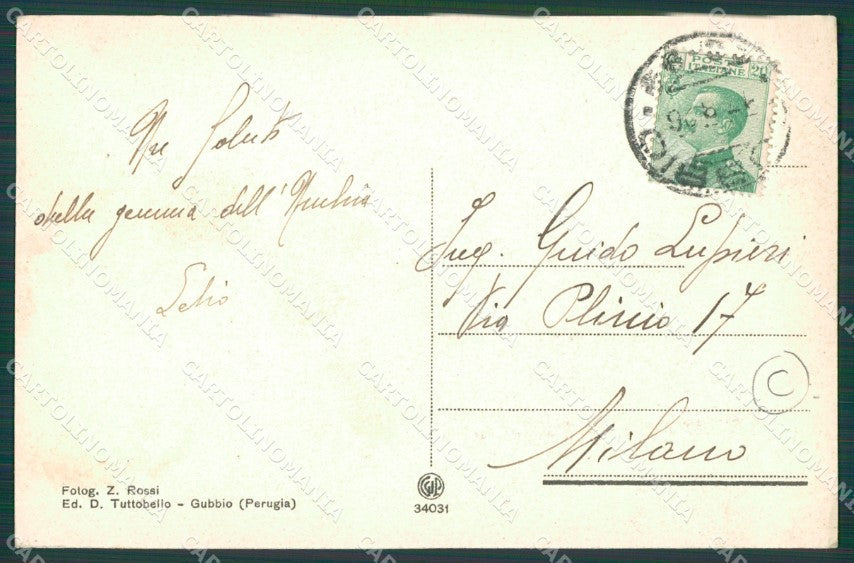 della gemma dell'Umbria
Lelio
Fotog. Z. Rossi
Ed. D. Tuttobello - Gubbio (Perugia)
34031
POSTE
ITALIANE
20
Ing. Guido Lupieri
Via Plinio 17
Milano
C
CARTOLINOMANIA